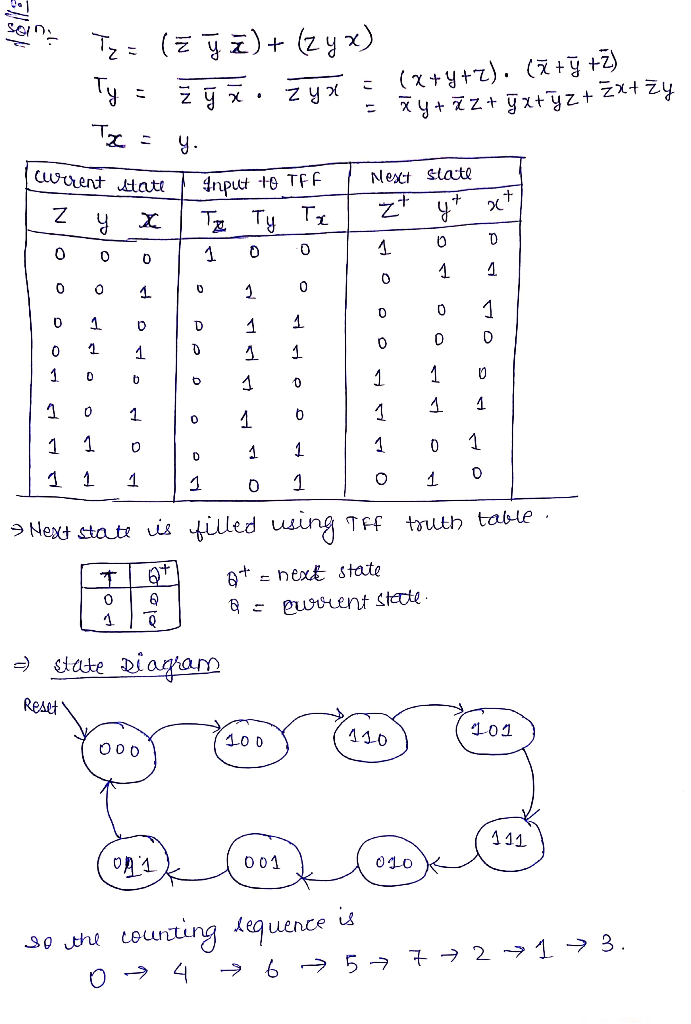 soln:-
Tz = (z̄ ȳ x̄) + (z y x)
Ty = \overline{z̄ ȳ x̄} . \overline{z y x} = (x+y+z). (x̄+ȳ+z̄)
= x̄y + x̄z + ȳx + ȳz + z̄x + z̄y
Tx = y.
Current state | Input to TFF | Next state
z y x | Tz Ty Tx | z+ y+ x+
0 0 0 | 1 0 0 | 1 0 0
0 0 1 | 0 1 0 | 0 1 1
0 1 0 | 0 1 1 | 0 0 1
0 1 1 | 0 1 1 | 0 0 0
1 0 0 | 0 1 0 | 1 1 0
1 0 1 | 0 1 0 | 1 1 1
1 1 0 | 0 1 1 | 1 0 1
1 1 1 | 1 0 1 | 0 1 0
→ Next state is filled using TFF truth table.
T | Q+
0 | Q
1 | Q̄
Q+ = next state
Q = current state.
⇒ state Diagram
Reset
000 100 110 101
011 001 010 111
so the counting sequence is
0 → 4 → 6 → 5 → 7 → 2 → 1 → 3.